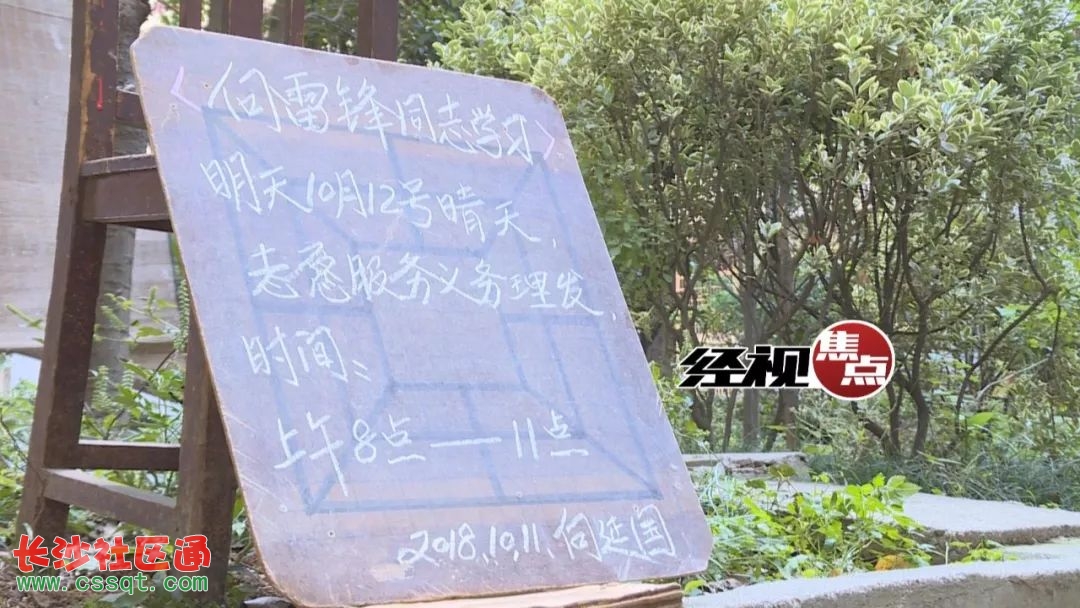 <向雷锋同志学习>
明天10月12号晴天,
志愿服务义务理发,
时间:
上午8点——11点
2018.10.11.何延国
经视焦点
长沙社区通
www.cssqt.com